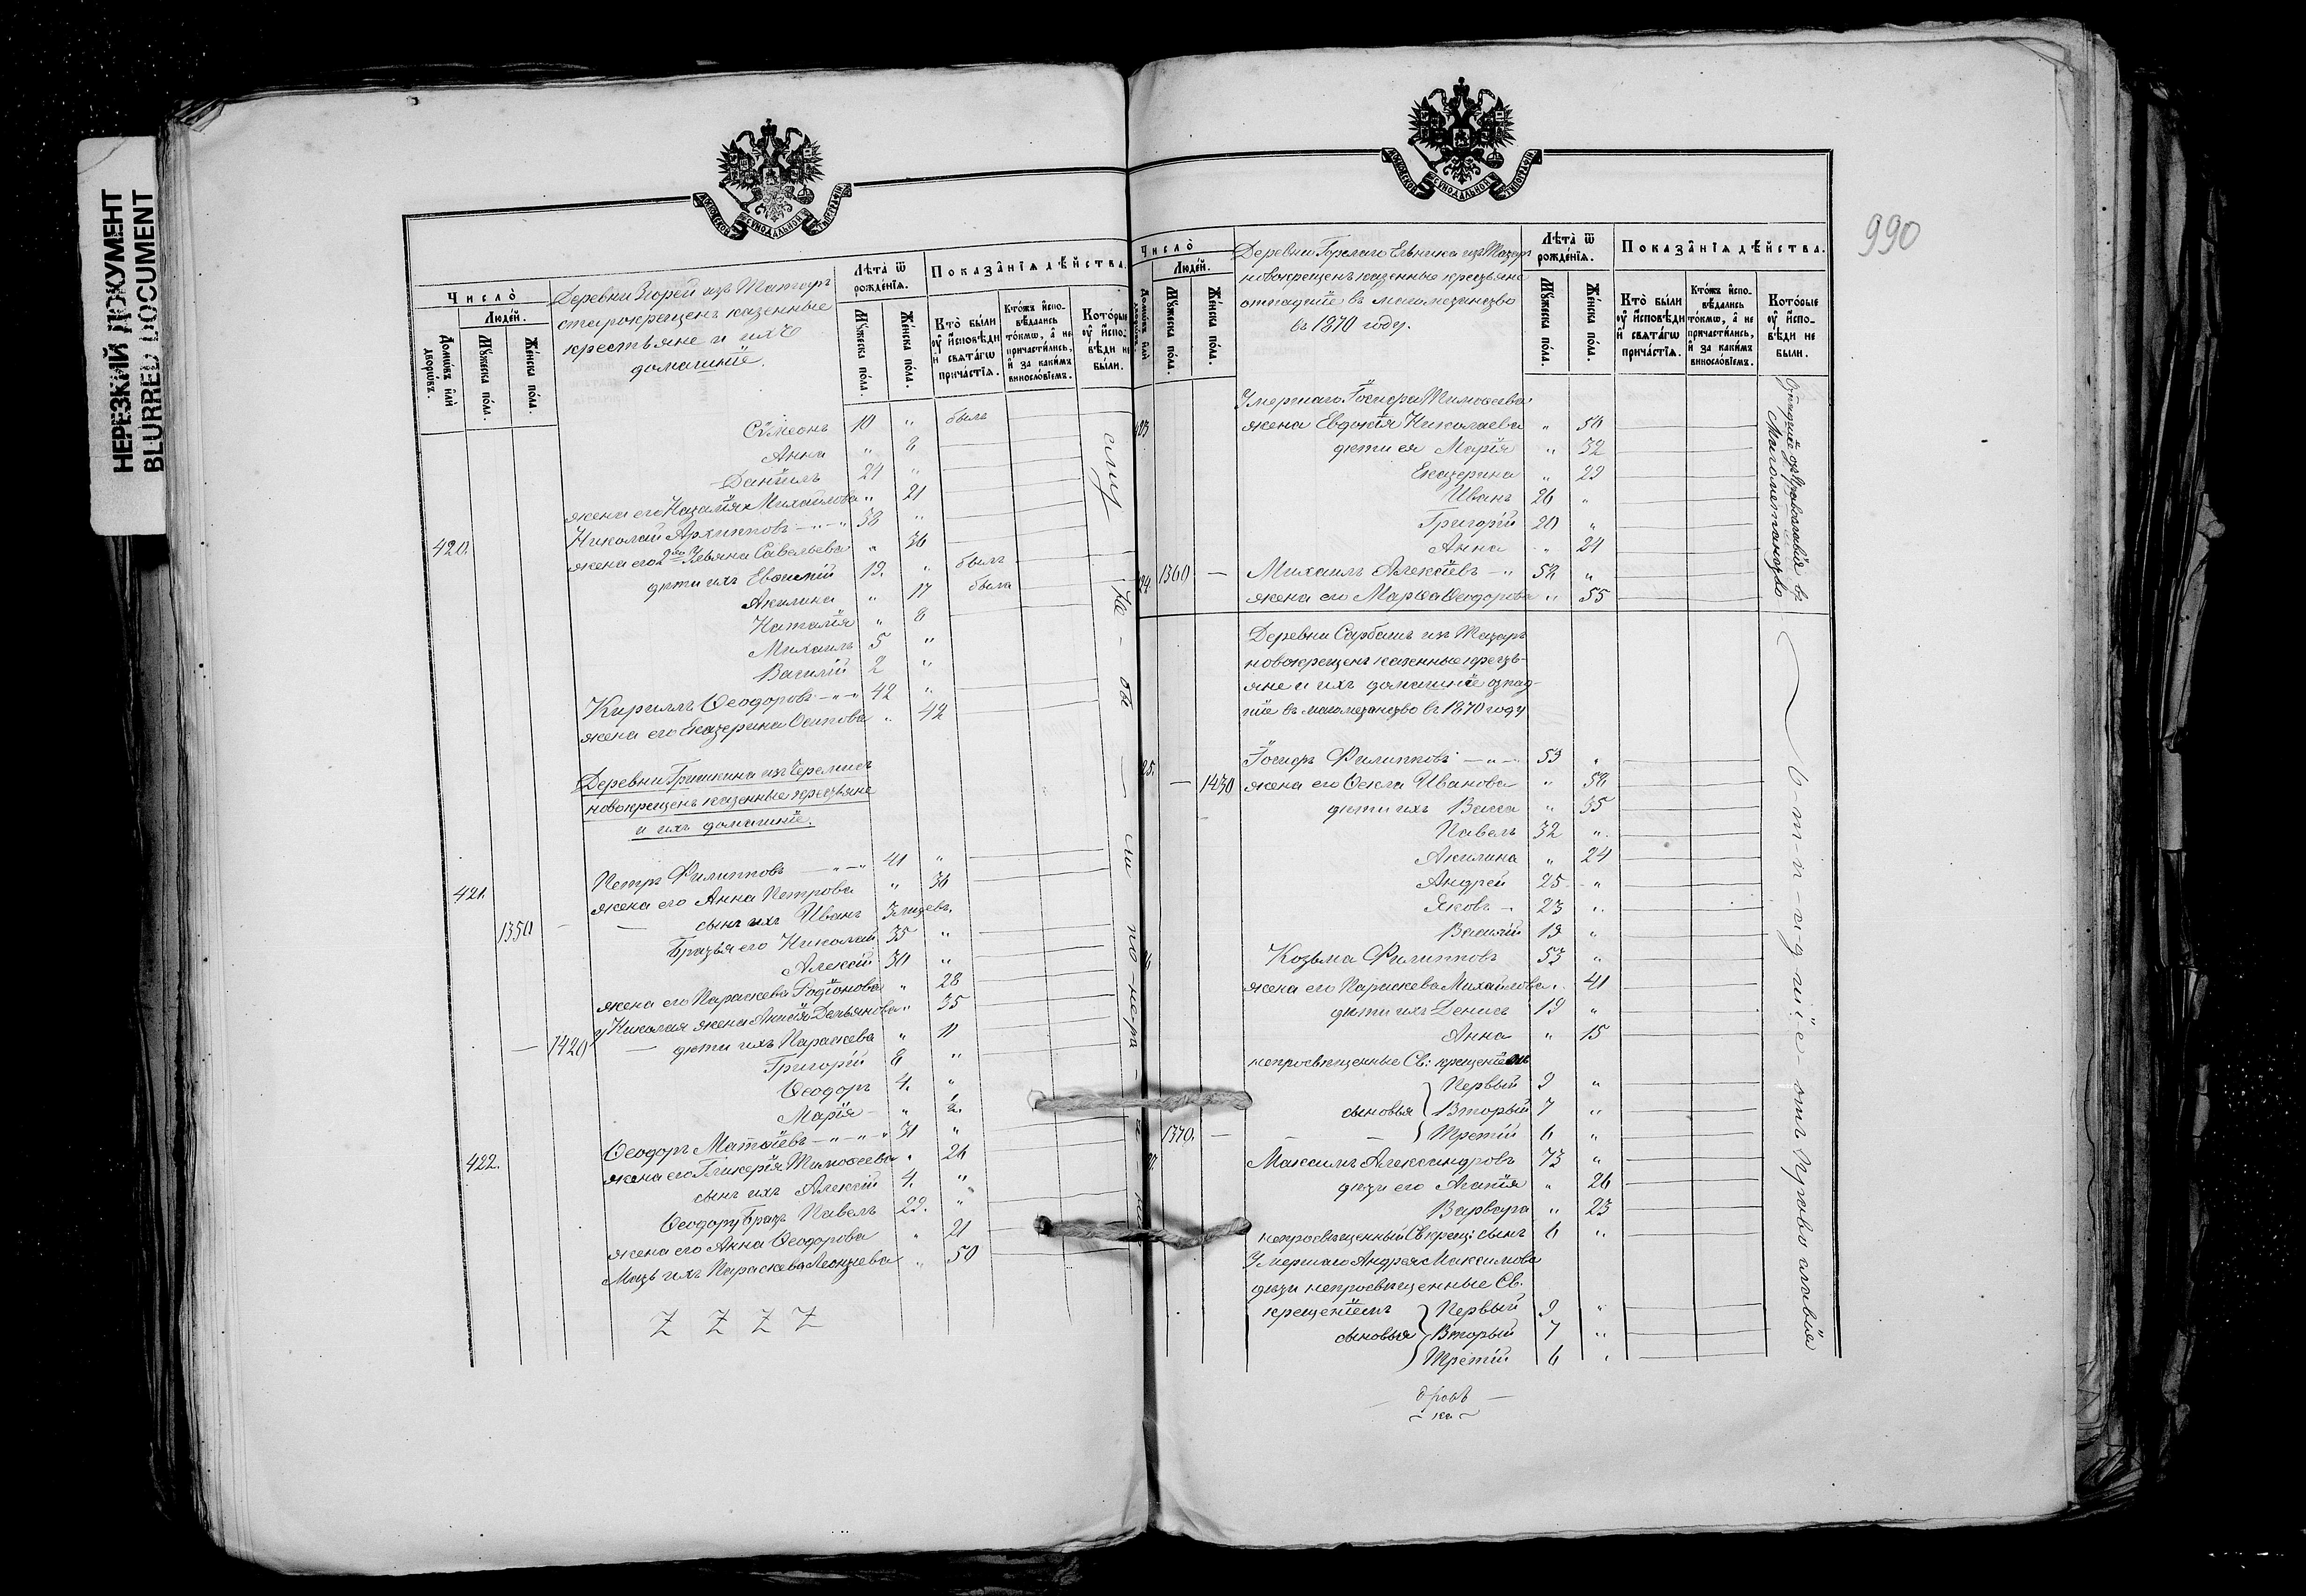 НЕРЕЗКИЙ ДОКУМЕНТ
BLURRED DOCUMENT
МОСКОВСКОЙ СѴНОДАЛЬНОЙ ТИПОГРАФІИ
Число̀
Людей.
Домѡвъ и҆лѝ дворѡвъ.
Мꙋжеска пола.
Женска пола.
Деревни Згорей изъ Татаръ
старокрещенъ казенные
крестьяне и ихъ
домашніе.
Лѣта̀ ѿ рожденїѧ.
Мꙋжеска пола.
Женска пола.
Показанїѧ дѣйства.
Кто̀ были оу҆ и҆сповѣди и҆ свѧтагѡ причастїѧ.
Ктожъ и҆сповѣдались токмѡ, а҆ не причастились, и҆ за какимъ винословїемъ.
Которые оу҆ и҆сповѣди не были.
Сѵмеонъ 10 " былъ
Анна " 8
Даніилъ 21 "
жена его Наталія Михайлова " 21
420. Николай Архиповъ 58 "
жена его 2го Ульяна Савельева " 36
дѣти ихъ Евсигній 19. " былъ
Акилина " 17 была
Наталія " 8
Михаилъ 5 "
Василій 2 "
Кириллъ Ѳеодоровъ 42 "
жена его Екатерина Осипова " 42
Деревни Гришкина изъ Черемисъ
новокрещенъ казенные крестьяне
и ихъ домашніе.
421. Петръ Филипповъ 41 "
жена его Анна Петрова " 36
1350 сынъ ихъ Иванъ
Братья его Николай 35 "
Алексій 30 "
жена его Параскева Родіонова " 28
у Николая жена Анисія Демьянова " 35
1420 дѣти ихъ Параскева " 11
Григорій 8 "
Ѳеодоръ 4. "
Марія " 2.
422. Ѳеодоръ Матѳіевъ 31 "
жена его Гликерія Тимоѳеева " 26
сынъ ихъ Алексій 4. "
Ѳеодору братъ Павелъ 22. "
жена его Анна Ѳеодорова " 21
Мать ихъ Параскева Леонтьева " 50
Z Z Z Z
990
МОСКОВСКОЙ СѴНОДАЛЬНОЙ ТИПОГРАФІИ
Число̀
Людей.
Мꙋжеска пола.
Женска пола.
Деревни Горѣлаго Ельника изъ Татаръ
новокрещенъ казенные крестьяне
отпадшіе въ магометанство
въ 1870 году.
Лѣта̀ ѿ рожденїѧ.
Мꙋжеска пола.
Женска пола.
Показанїѧ дѣйства.
Кто̀ были оу҆ и҆сповѣди и҆ свѧтагѡ причастїѧ.
Ктожъ и҆сповѣдались токмѡ, а҆ не причастились, и҆ за какимъ винословїемъ.
Которые оу҆ и҆сповѣди не были.
Умершаго Іосифа Тимоѳеева
жена Евдокія Николаева " 50
дѣти ея Марія " 32
Екатерина " 22
Иванъ 26 "
Григорій 20 "
Анна " 24
1360 — Михаилъ Алексіевъ 58 "
жена его Марѳа Ѳеодорова " 55
Отпадшіе отъ Православія въ
Магометанство
Деревни Сарбашъ изъ Татаръ
новокрещенъ казенные крестьяне
и ихъ домашніе отпадшіе
въ магометанство въ 1870 году
Іосифъ Филипповъ 53 "
— 1430 жена его Ѳекла Иванова " 58
дѣти ихъ Васса " 35
Павелъ 32 "
Акилина " 24
Андрей 25 "
Яковъ 23 "
Василій 19 "
Козьма Филипповъ 53 "
жена его Параскева Михайлова " 41
дѣти ихъ Денисъ 19 "
Анна " 15
непросвѣщенные Св: крещеніемъ
сыновья Первый 9 "
Вторый 7 "
1370. — Третій 6 "
Максимъ Александровъ 73 "
дѣти его Агапія " 26
Варвара " 23
непросвѣщенный Св крещ: сынъ 6 "
Умершаго Андрея Максимова
дѣти непросвѣщенные Св.
крещеніемъ Первый 9 "
сыновья Вторый 7 "
Третій 6 "
отпадшіе отъ Православія